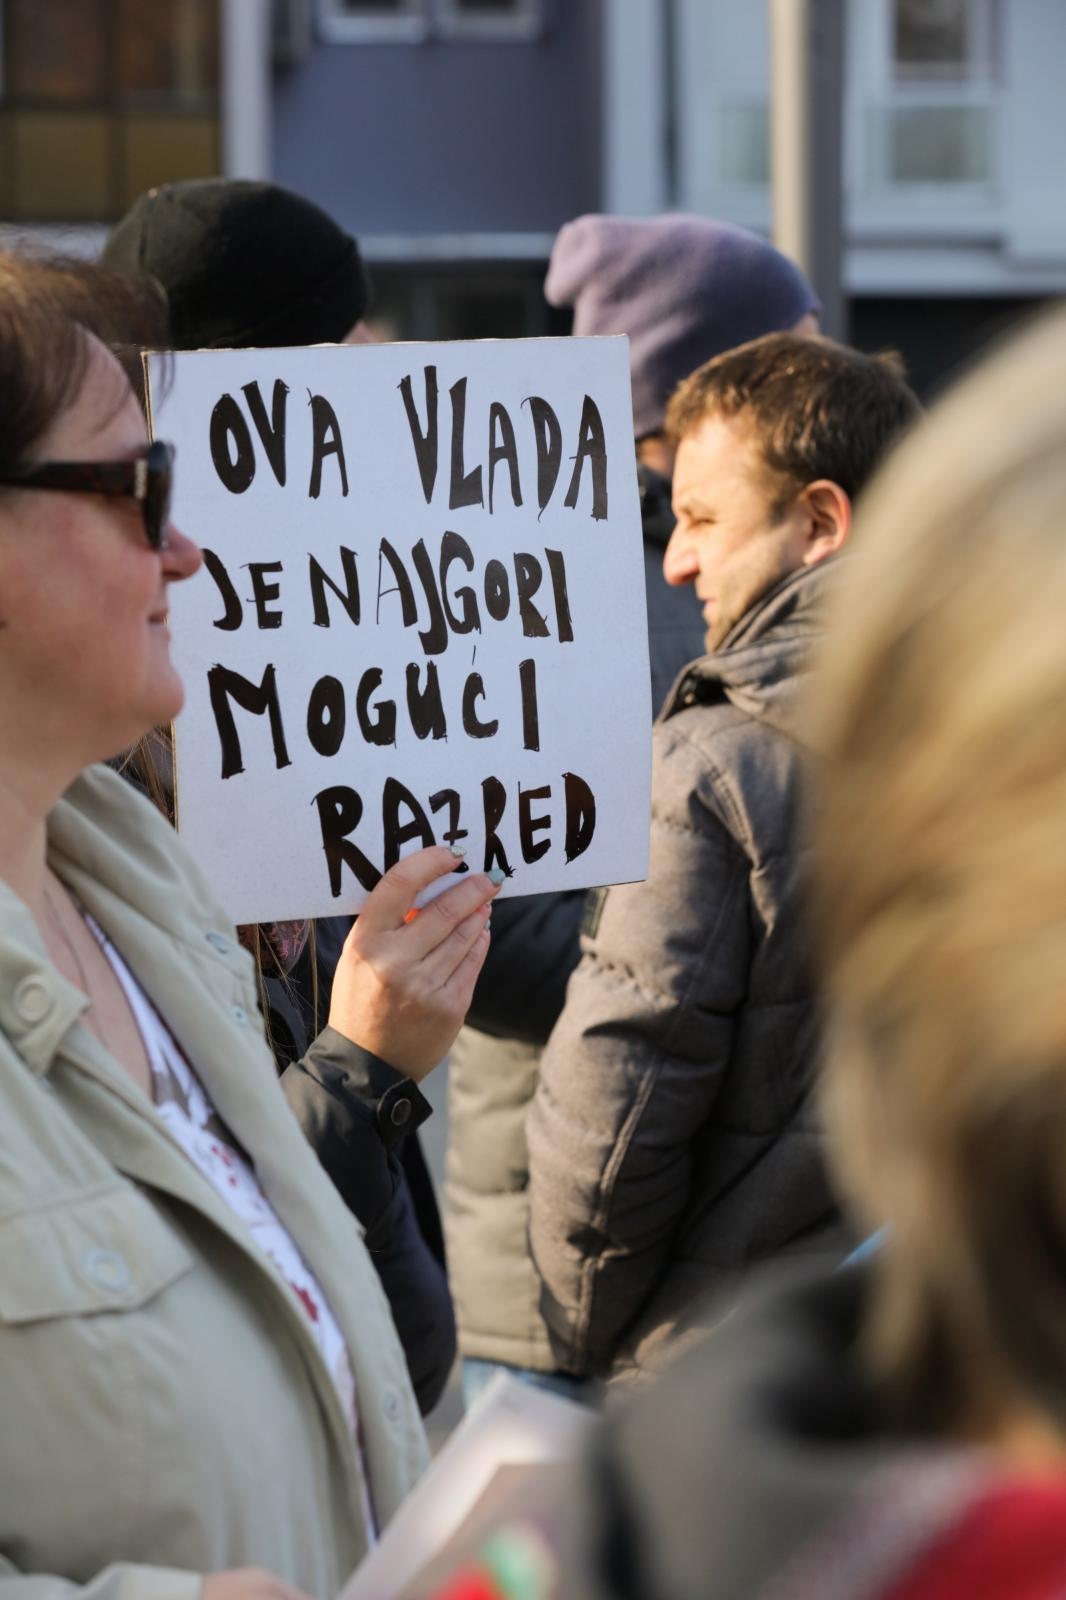 OVA VLADA
JE NAJGORI
MOGUĆI
RAZRED